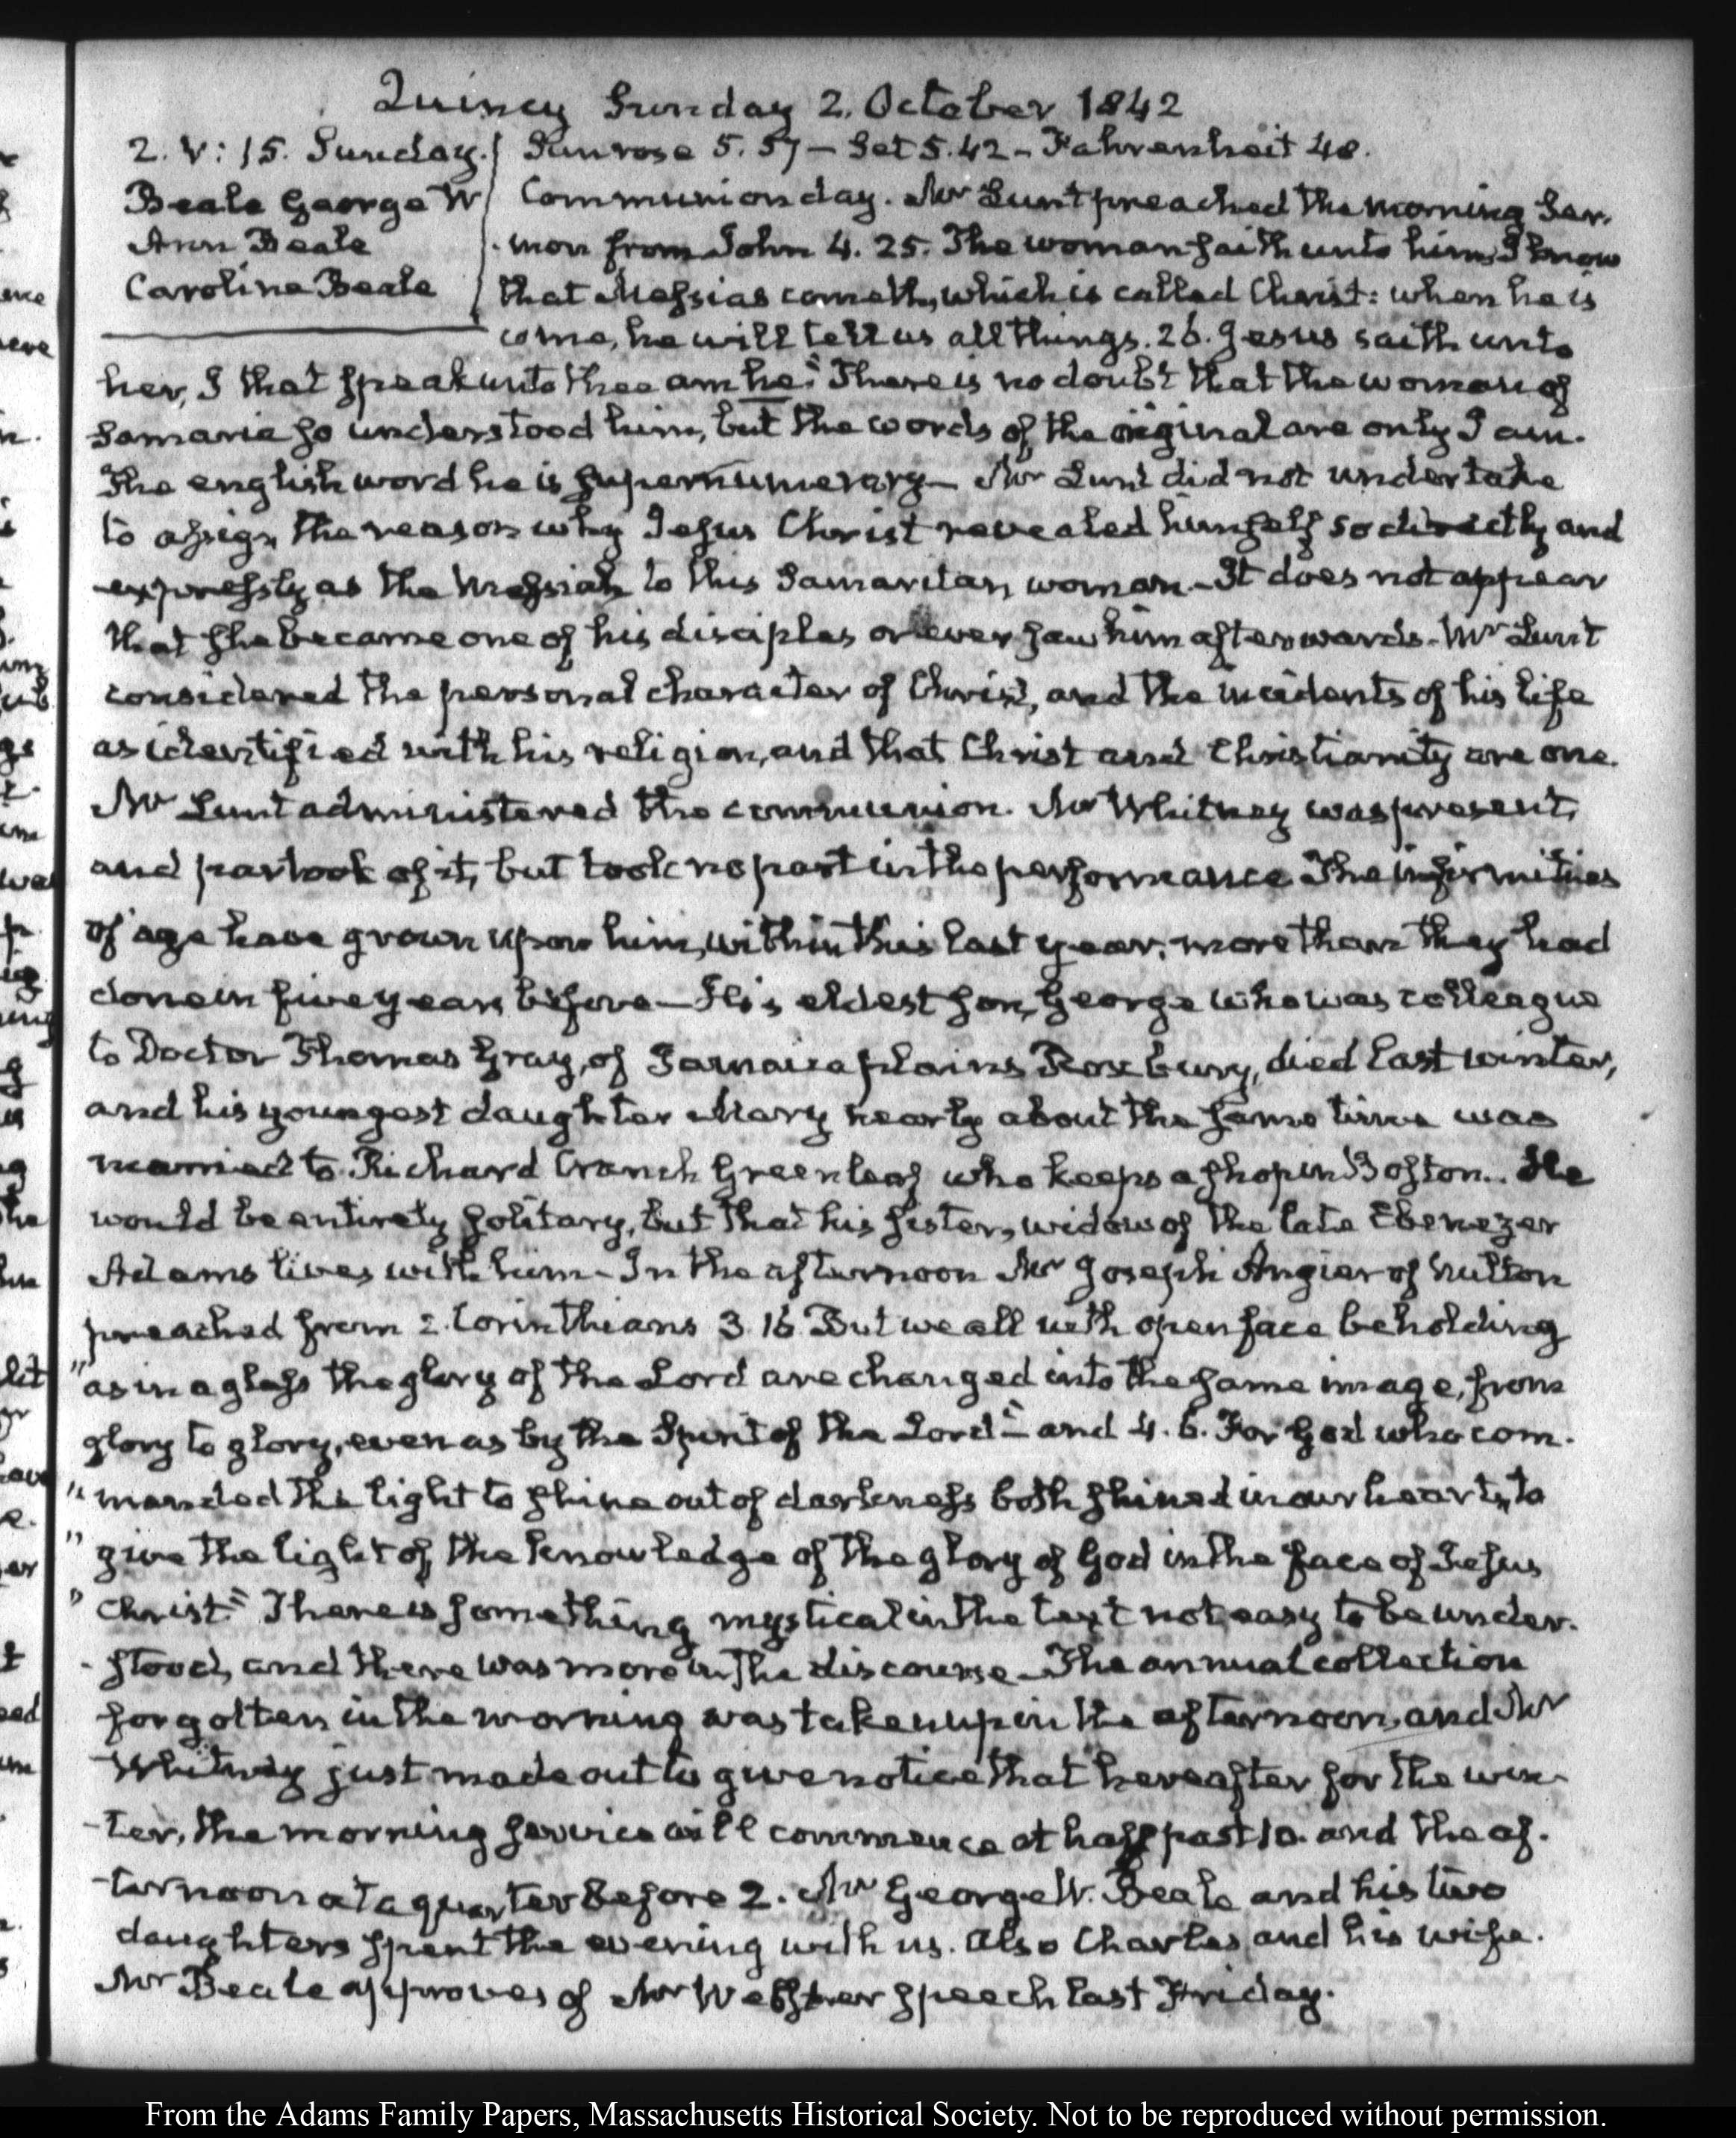 Quincy Sunday 2. October 1842
2. V: 15. Sunday.
Beale George W
Ann Beale
Caroline Beale
Sunrose 5.57 — Set 5.42 — Fahrenheit 48.
Communion day. Mr Lunt preached the morning Ser-
-mon from John 4. 25. The woman saith unto him, I know
that Messias cometh, which is called Christ: when he is
come, he will tell us all things. 26. Jesus saith unto
her, I that speak unto thee am he." There is no doubt that the woman of
Samaria so understood him, but the words of the original are only I am.
The english word he is supernumerary — Mr Lunt did not undertake
to assign the reason why Jesus Christ revealed himself so directly and
expressly as the Messiah to this Samaritan woman. — It does not appear
that she became one of his disciples or ever saw him afterwards — Mr Lunt
considered the personal character of Christ, and the incidents of his life
as identified with his religion, and that Christ and Christianity are one.
Mr Lunt administered the communion. Mr Whitney was present,
and partook of it, but took no part in the performance The infirmities
of age have grown upon him, within this last year, more than they had
done in five years before — His eldest son, George who was colleague
to Doctor Thomas Gray, of Jamaica plains Roxbury, died last winter,
and his youngest daughter Mary nearly about the same time was
married to Richard Cranch Greenleaf who keeps a shop in Boston.. He
would be entirely solitary, but that his sister, widow of the late Ebenezer
Adams lives with him — In the afternoon Mr Joseph Angier of Milton
preached from 2. Corinthians 3. 18 But we all with open face beholding
"as in a glass the glory of the Lord are changed into the same image, from
glory to glory, even as by the Spirit of the Lord" — and 4. 6. For God who com-
"manded the light to shine out of darkness hath shined in our hearts, to
"give the light of the knowledge of the glory of God in the face of Jesus
"Christ" There is something mystical in the text not easy to be under-
-stood, and there was more in the discourse — The annual collection
forgotten in the morning was taken up in the afternoon, and Mr
Whitney just made out to give notice that hereafter for the win-
-ter, the morning service will commence at half past 10. and the af-
-ternoon at a quarter before 2. Mr George W. Beale and his two
daughters spent the evening with us. Also Charles and his wife.
Mr Beale approves of Mr Webster speech last Friday.
From the Adams Family Papers, Massachusetts Historical Society. Not to be reproduced without permission.